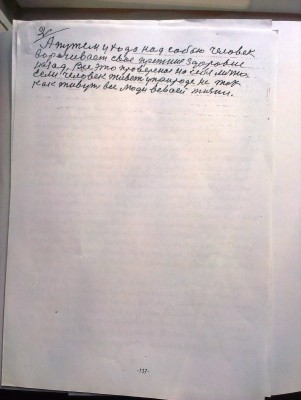 3/
А путем ухода над собою человек
ворачивает свое прежние здоровие
назад. Все это проверено на себе лично
если человек живет у природе не так
как живут все люди всваей жизни.
-137-